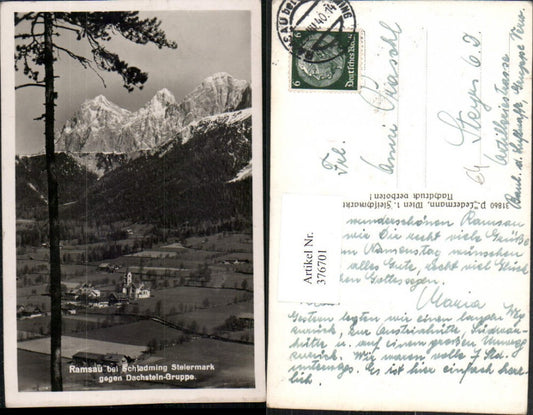 Ramsau bei Schladming Steiermark
gegen Dachstein-Gruppe.
40.-14
6 Deutsches Reich 6
Frl.
Anni
Steyr
Artikel Nr.
376701
P. Ledermann, Wien 1, Fleischmarkt
Nachdruck verboten!
wunderschönen Ramsau
wie Dir recht viele Grüße
Namenstag wünschen
alles Gute, recht viel Glück
Gottessegen.
Maria
Gestern legten wir einen langen Weg
zurück, zur Austriahütte, Südwand-
hütte u. auf einem großen Umweg
zurück. Wir waren volle 7 Std.
unterwegs. Es ist hier einfach herr-
lich.